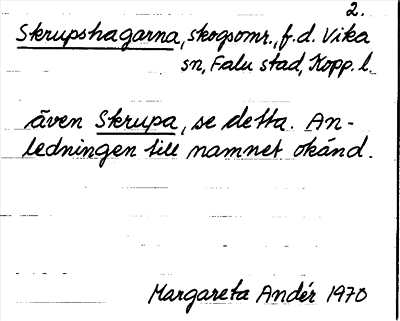 2.
Skrupshagarna, skogsomr., f.d. Vika
sn, Falu stad, Kopp. l.
även Skrupa, se detta. An-
ledningen till namnet okänd.
Margareta Andér 1970